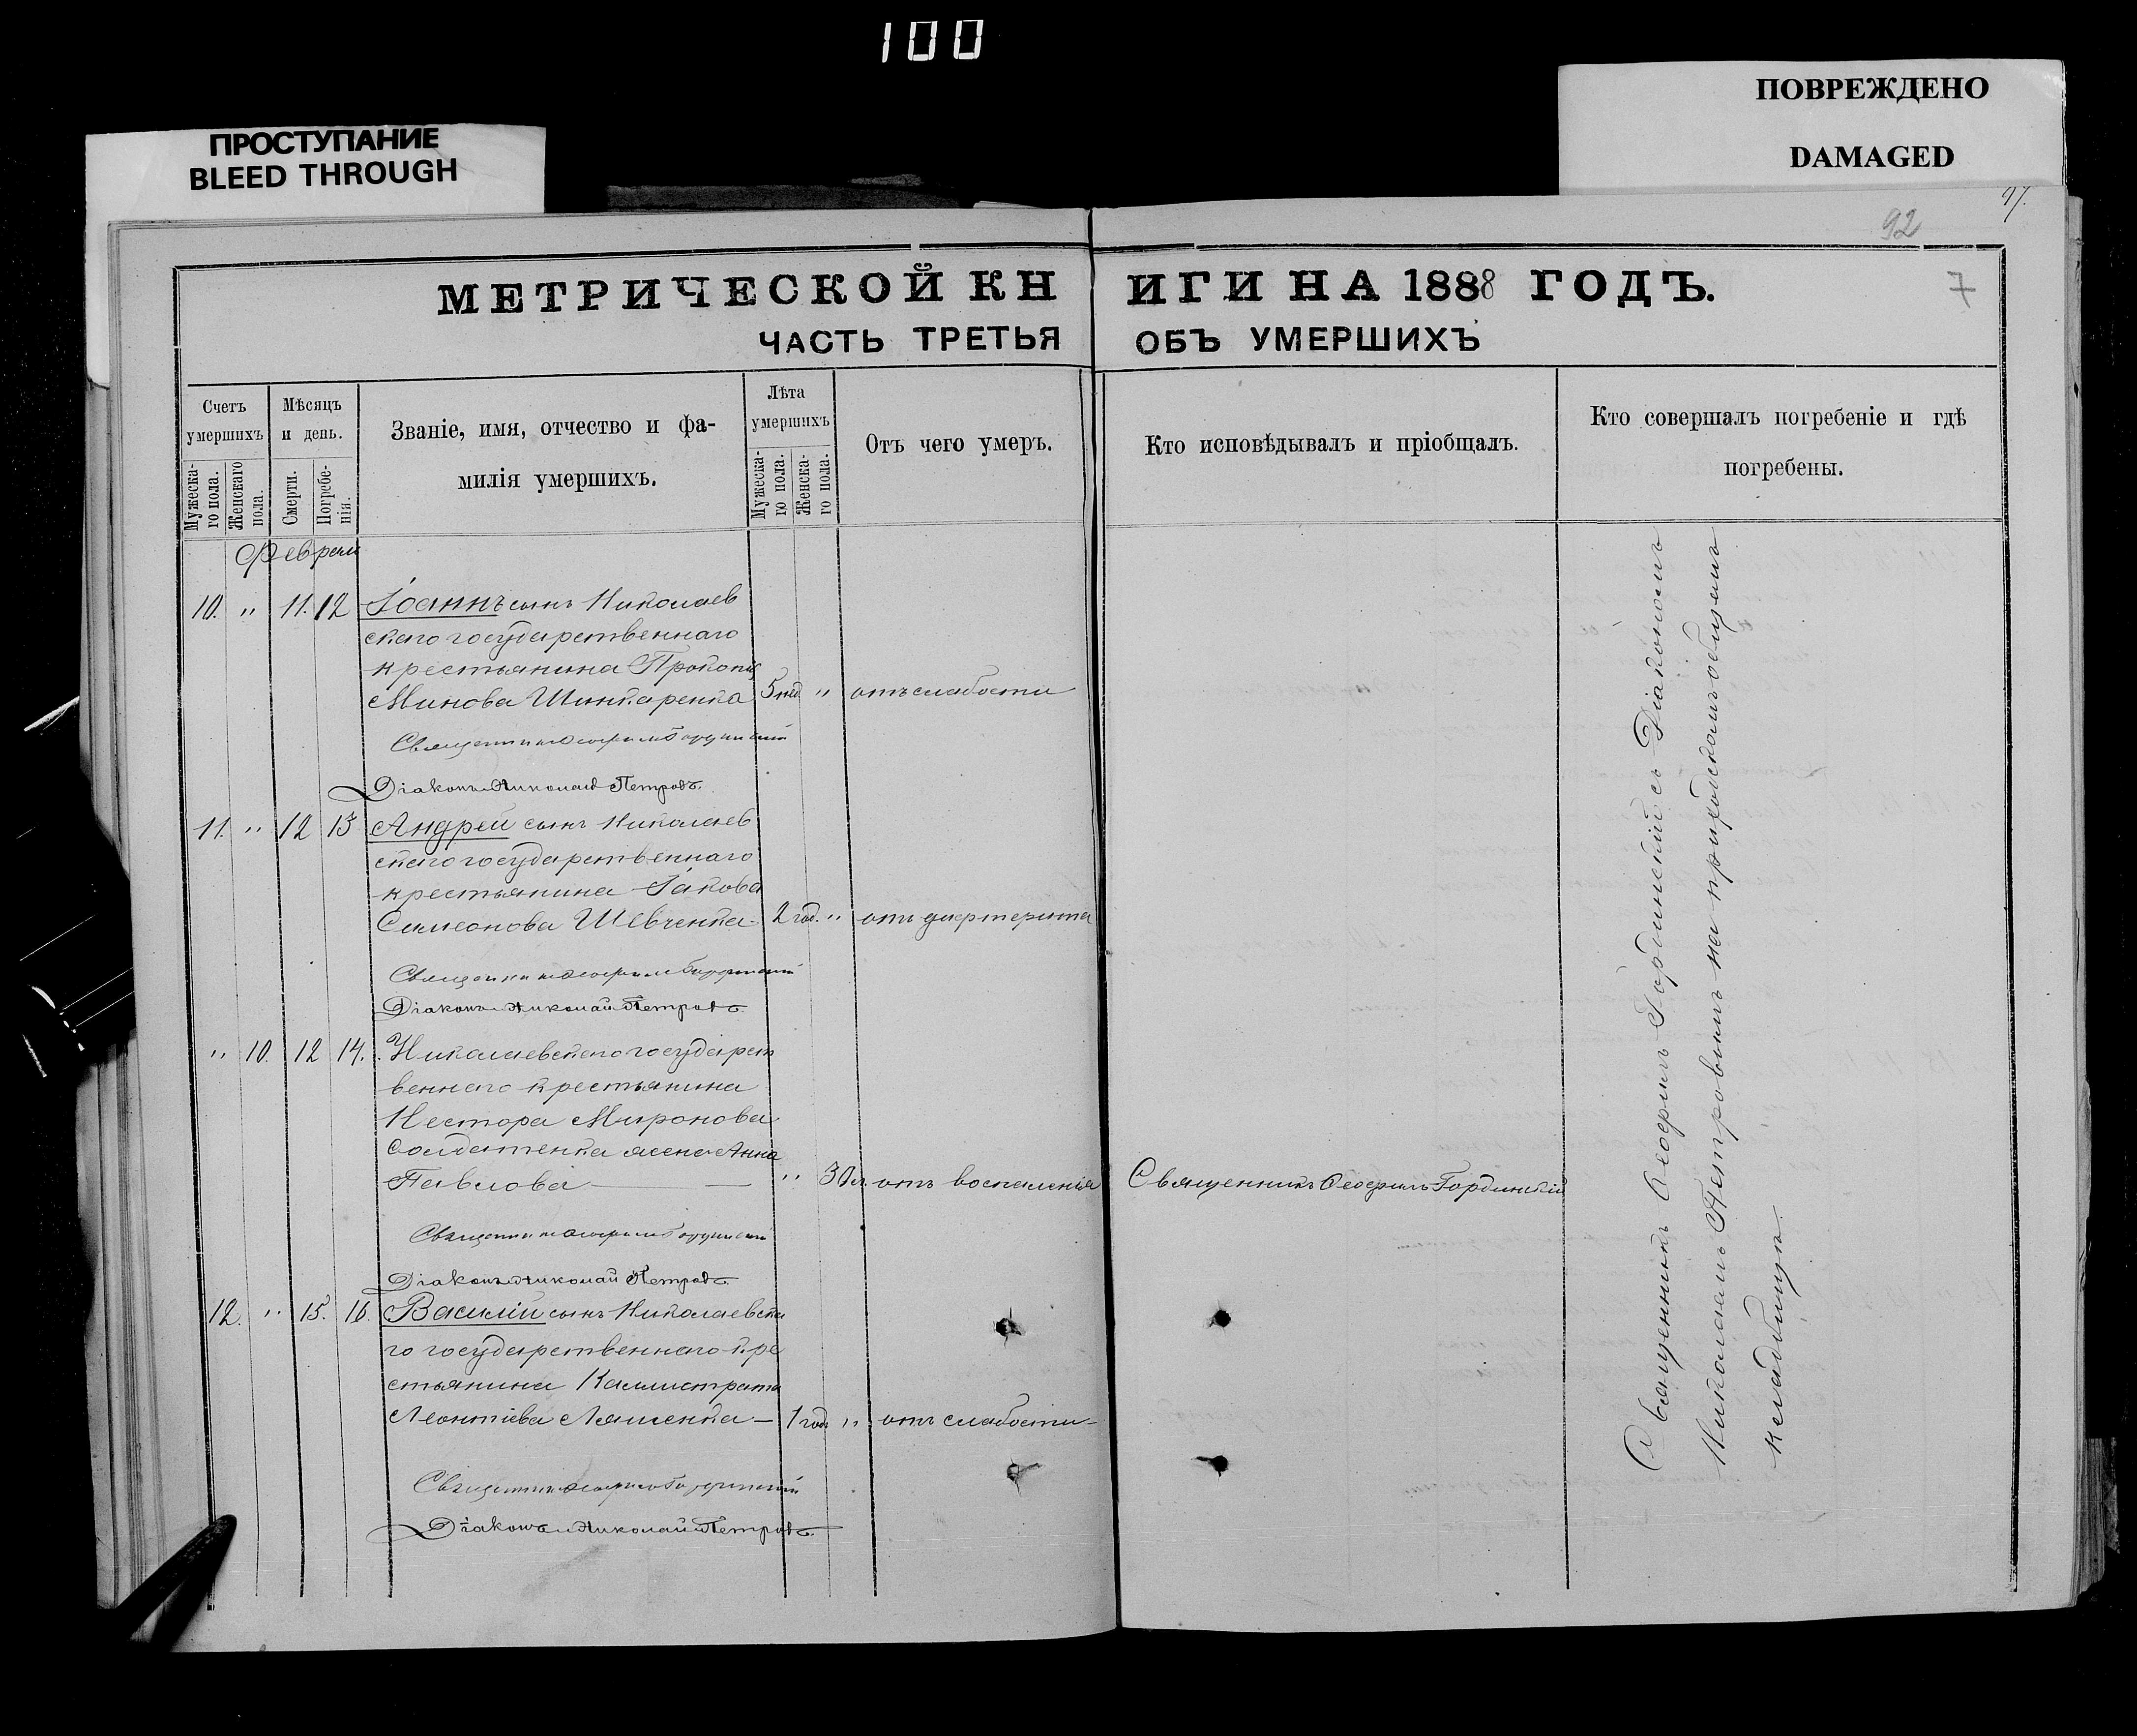 100
ПРОСТУПАНИЕ
BLEED THROUGH
ПОВРЕЖДЕНО
DAMAGED
97.
92
7
МЕТРИЧЕСКОЙ КНИГИ НА 1888 ГОДЪ.
ЧАСТЬ ТРЕТЬЯ ОБЪ УМЕРШИХЪ
Счетъ умершихъ
Мужескаго пола.
Женскаго пола.
Мѣсяцъ и день.
Смерти.
Погребенія.
Званіе, имя, отчество и фамилія умершихъ.
Лѣта умершихъ
Мужескаго пола.
Женскаго пола.
Отъ чего умеръ.
Кто исповѣдывалъ и пріобщалъ.
Кто совершалъ погребеніе и гдѣ погребены.
Февраль
10. " 11. 12 Іоаннъ сынъ Николаев
скаго государственнаго
крестьянина Прокопія
Минова Шинкаренка 5 нед " отъ слабости
Священникъ Гординскій
Діаконъ Николай Петровъ.
11. " 12 13 Андрей сынъ Николаев
скаго государственнаго
крестьянина Іакова
Симеонова Шевченка 2 год. " отъ дифтерита
Священникъ Гординскій
Діаконъ Николай Петровъ
" 10. 12 14. Николаевскаго государст
веннаго крестьянина
Нестора Миронова
Солдатенка жена Анна
Павлова " 30 л отъ воспаленія Священникъ Ѳеофилъ Гординскій
Священникъ Гординскій
Діаконъ Николай Петровъ
12. " 15. 16. Василій сынъ Николаевска
го государственнаго кре
стьянина Каллистрата
Леонтіева Ляшенка 1 год " отъ слабости
Священникъ Гординскій
Діаконъ Николай Петровъ
Священникъ Ѳеофилъ Гординскій съ Діакономъ
Николаемъ Петровымъ на приходскомъ общемъ
кладбищѣ.